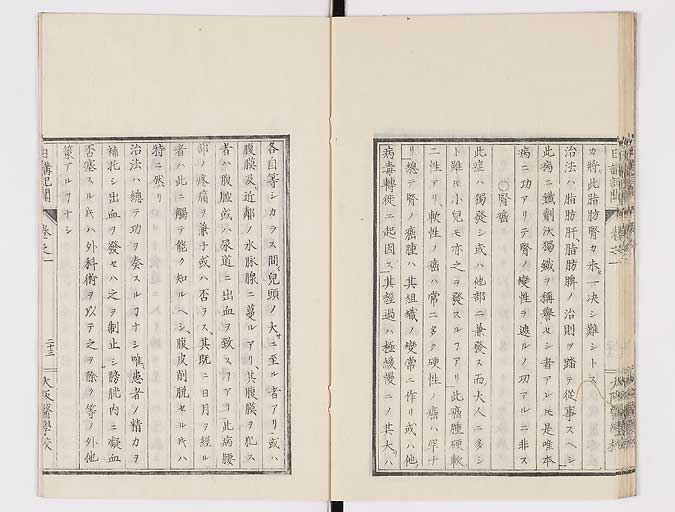 カ將此脂肪腎カ未一决シ難シトス
治法ハ脂肪肝、脂肪脾ノ治則ヲ踏テ從事スヘシ
此病ニ鐵劑沃獨鐵ヲ稱擧セシ者アレ𪜈是唯本
病ニ功アリテ腎ノ變性ヲ遮ルノ功アルニ非ス
〇腎癌
此症ハ獨發シ或ハ他部ニ兼發ス而乄大人ニ多シ
ト雖𪜈小兒モ亦之ヲ發スルヿアリ此癌腫硬軟
二性アリ軟性ノ癌ハ常ニ多ク硬性ノ癌ハ罕ナ
リ總テ腎ノ癌腫ハ其組織ノ變常ニ作リ或ハ他
病毒轉徙ニ起因ス其經過ハ極緩慢ニ乄其大ハ
各自等シカラス間兒頭ノ大ニ至ル者アリ或ハ
腹膜及近鄰ノ水脉腺ニ蔓ルアリ其腹膜ヲ犯ス
者ハ腹膣或ハ尿道ニ出血ヲ致スヿアリ此病腰
部ノ疼痛ヲ兼于或ハ否ラス其既ニ日月ヲ經ル
者ハ此ニ觸テ能ク知ルヘシ腹皮削脱セル𪜈ハ
特ニ然リ
治法ハ總テ功ヲ奏スルヿナシ唯患者ノ精力ヲ
補托シ出血ヲ發セハ之ヲ制止シ膀胱内ニ凝血
否塞スル𪜈ハ外科術ヲ以テ之ヲ除ク等ノ外他
策アルヿナシ
日講記聞
卷之一
二十三
大坂醫學校